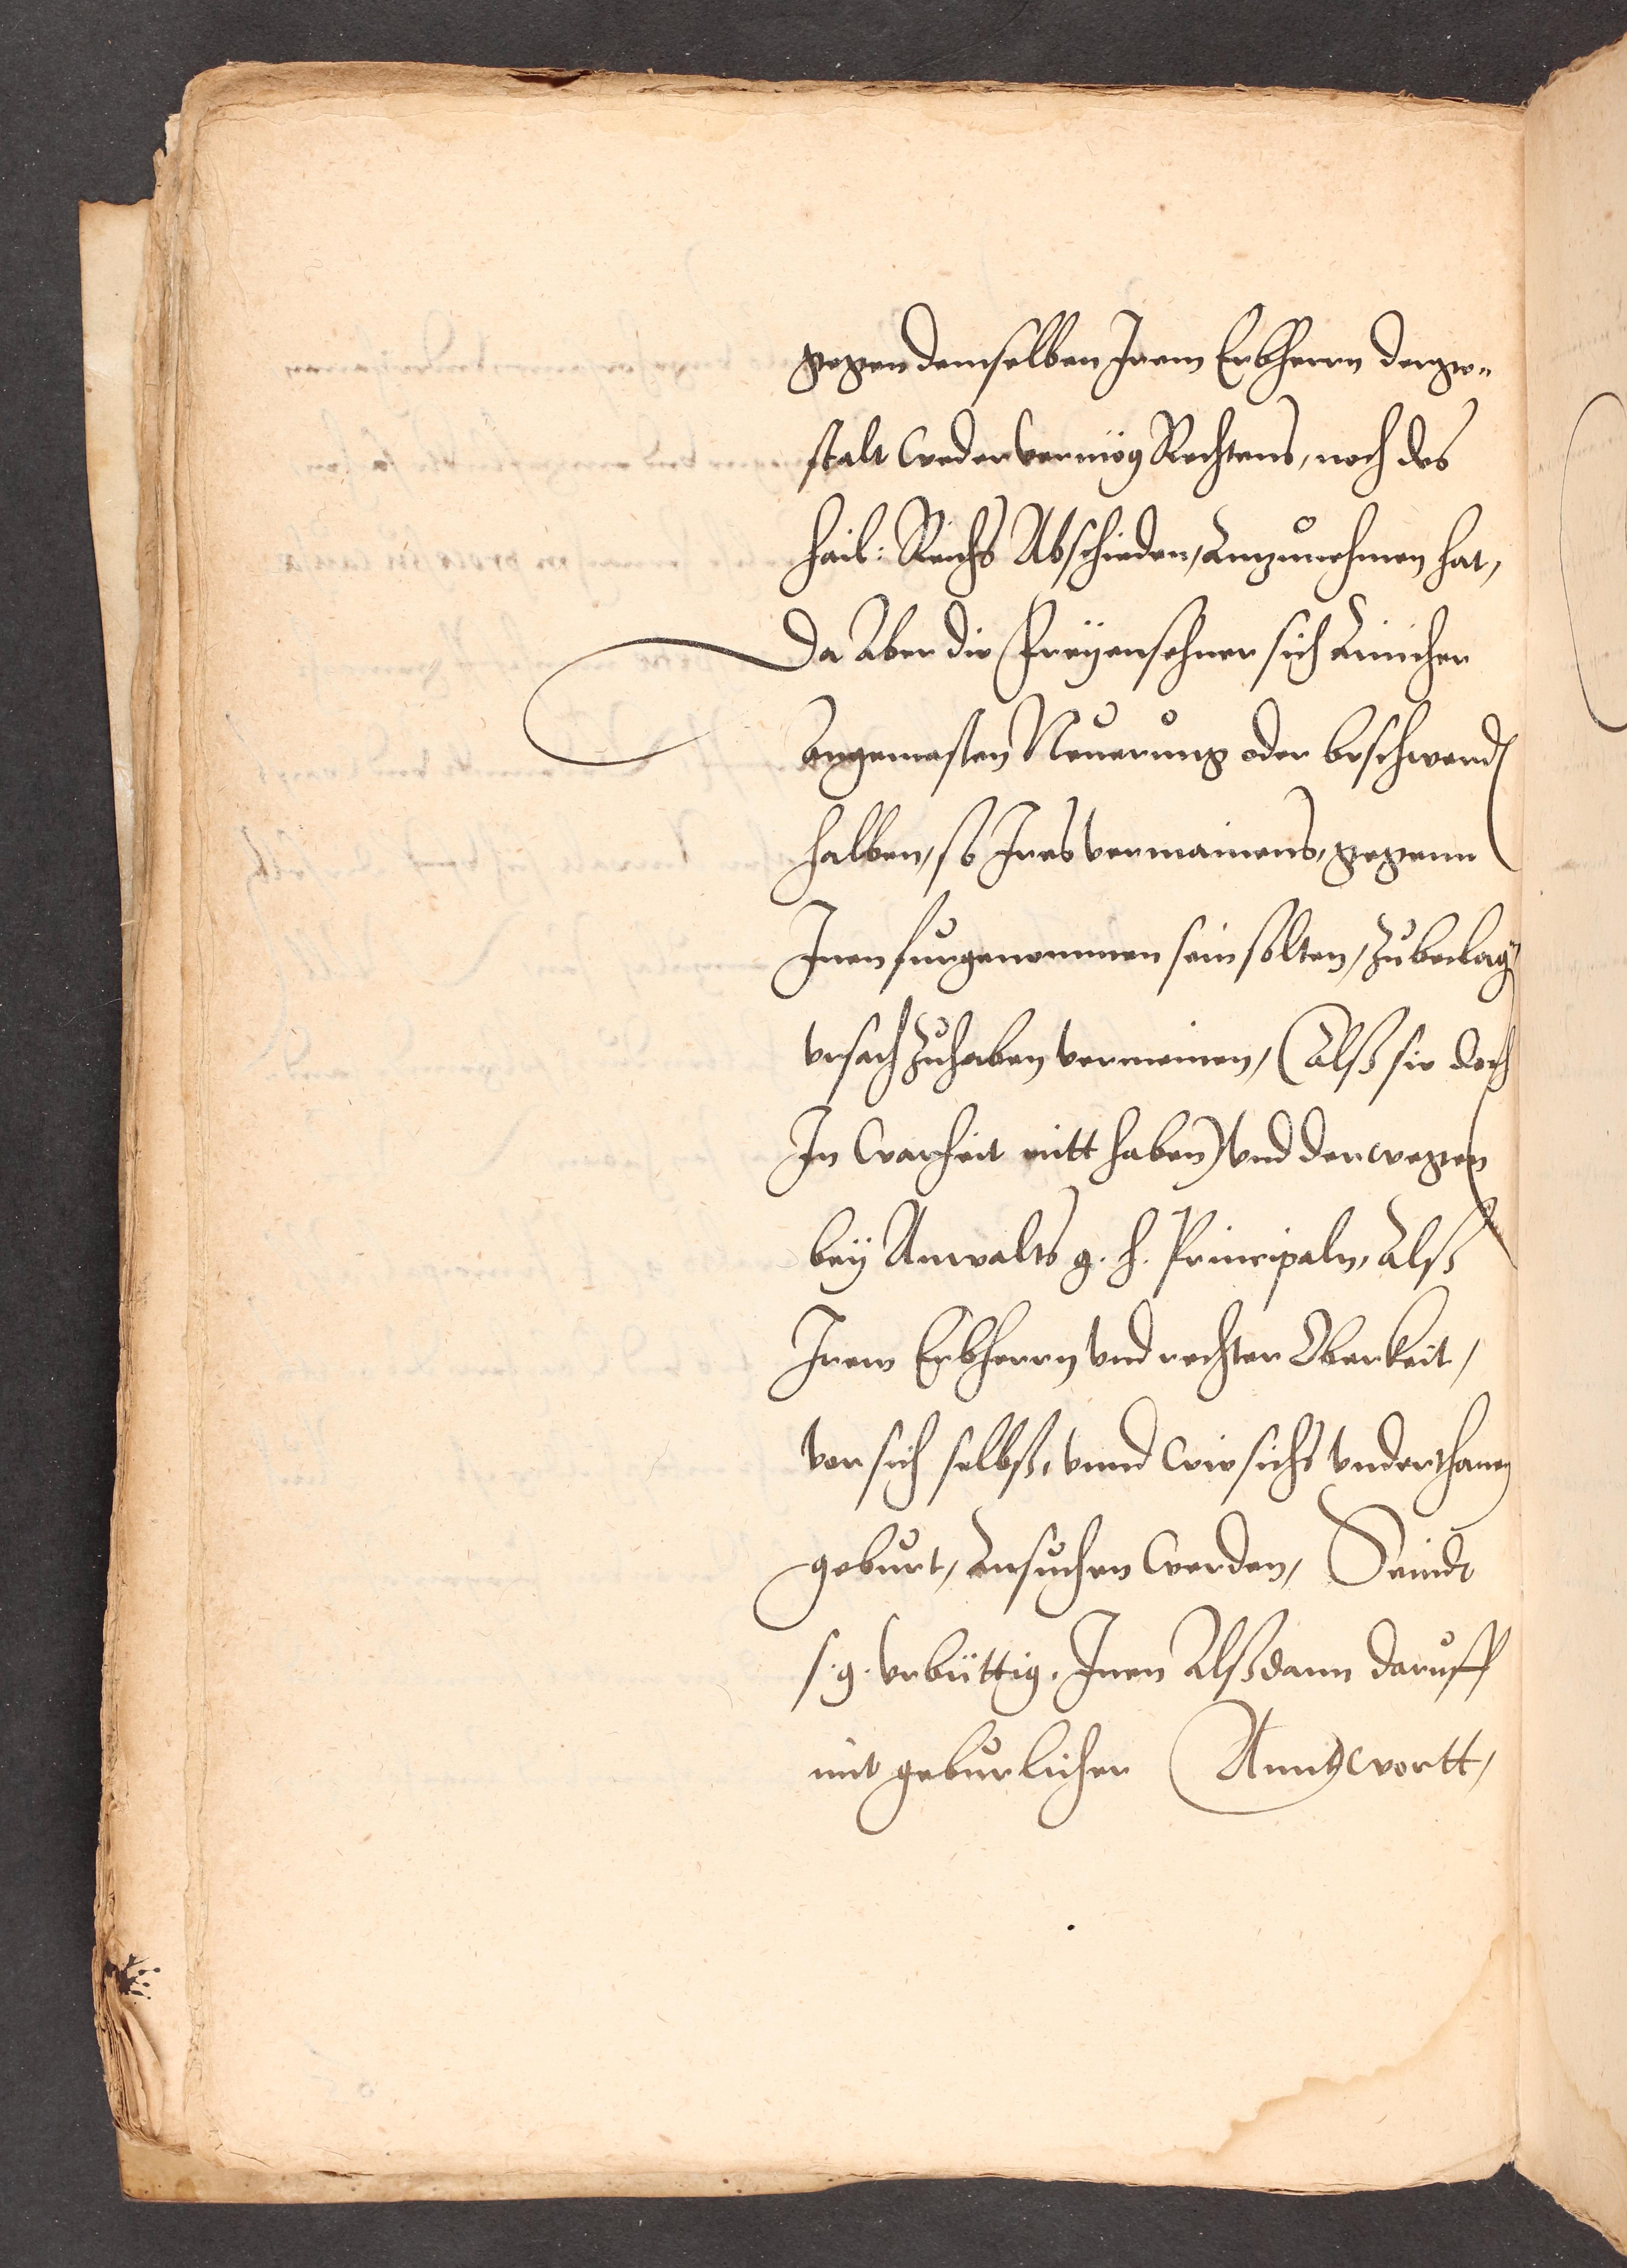 gegen demselben Irem Erbherrn derge„
stalt weder vermög Rechtens, noch des
hail: Reichs Abschieden, Anzunehmen hat,
Da Aber die Freyensehner sich Ainicher
angemasten Neuerung oder beschwerd
halben, so Ires vermainens, gegenn
Inen furgenommen sein solten, Zubeclag
vrsach Zuhaben vermeinen, (Alß sie doch
In warheit nitt haben) vnd derwegen
bey Anwalts g. h. Principaln, Alß
Irem Erbherrn vnd rechter Oberkeit,
vor sich selbß, vnnd wie sichs vnderthanen
geburt, Ansuchen werden, Seindt
s. g. vrbüttig, Inen Alßdann daruff
mit geburlicher Anndtwortt,